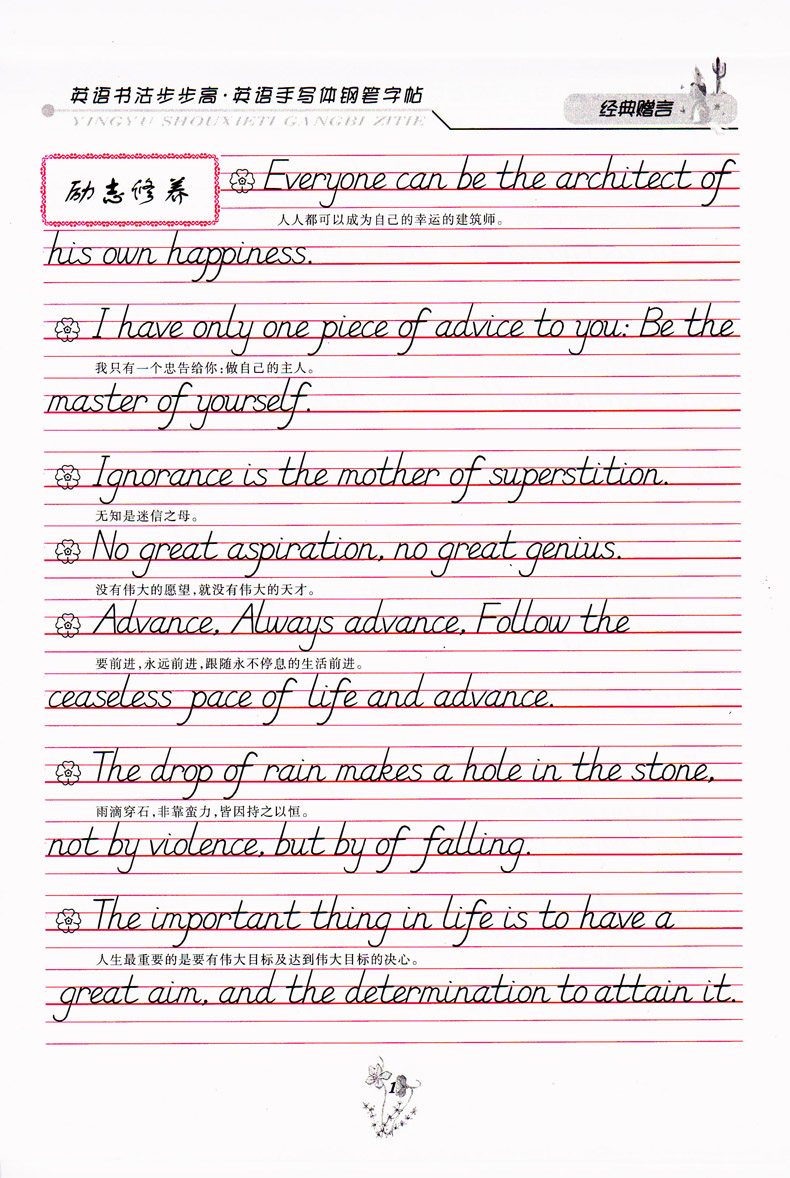 英语书法步步高·英语手写体钢笔字帖
YINGYU SHOUXIETI GANGBI ZITIE
经典赠言
励志修养
Everyone can be the architect of
人人都可以成为自己的幸运的建筑师。
his own happiness.
I have only one piece of advice to you: Be the
我只有一个忠告给你:做自己的主人。
master of yourself.
Ignorance is the mother of superstition.
无知是迷信之母。
No great aspiration, no great genius.
没有伟大的愿望,就没有伟大的天才。
Advance, Always advance, Follow the
要前进,永远前进,跟随永不停息的生活前进。
ceaseless pace of life and advance.
The drop of rain makes a hole in the stone,
雨滴穿石,非靠蛮力,皆因持之以恒。
not by violence, but by of falling.
The important thing in life is to have a
人生最重要的是要有伟大目标及达到伟大目标的决心。
great aim, and the determination to attain it.
1